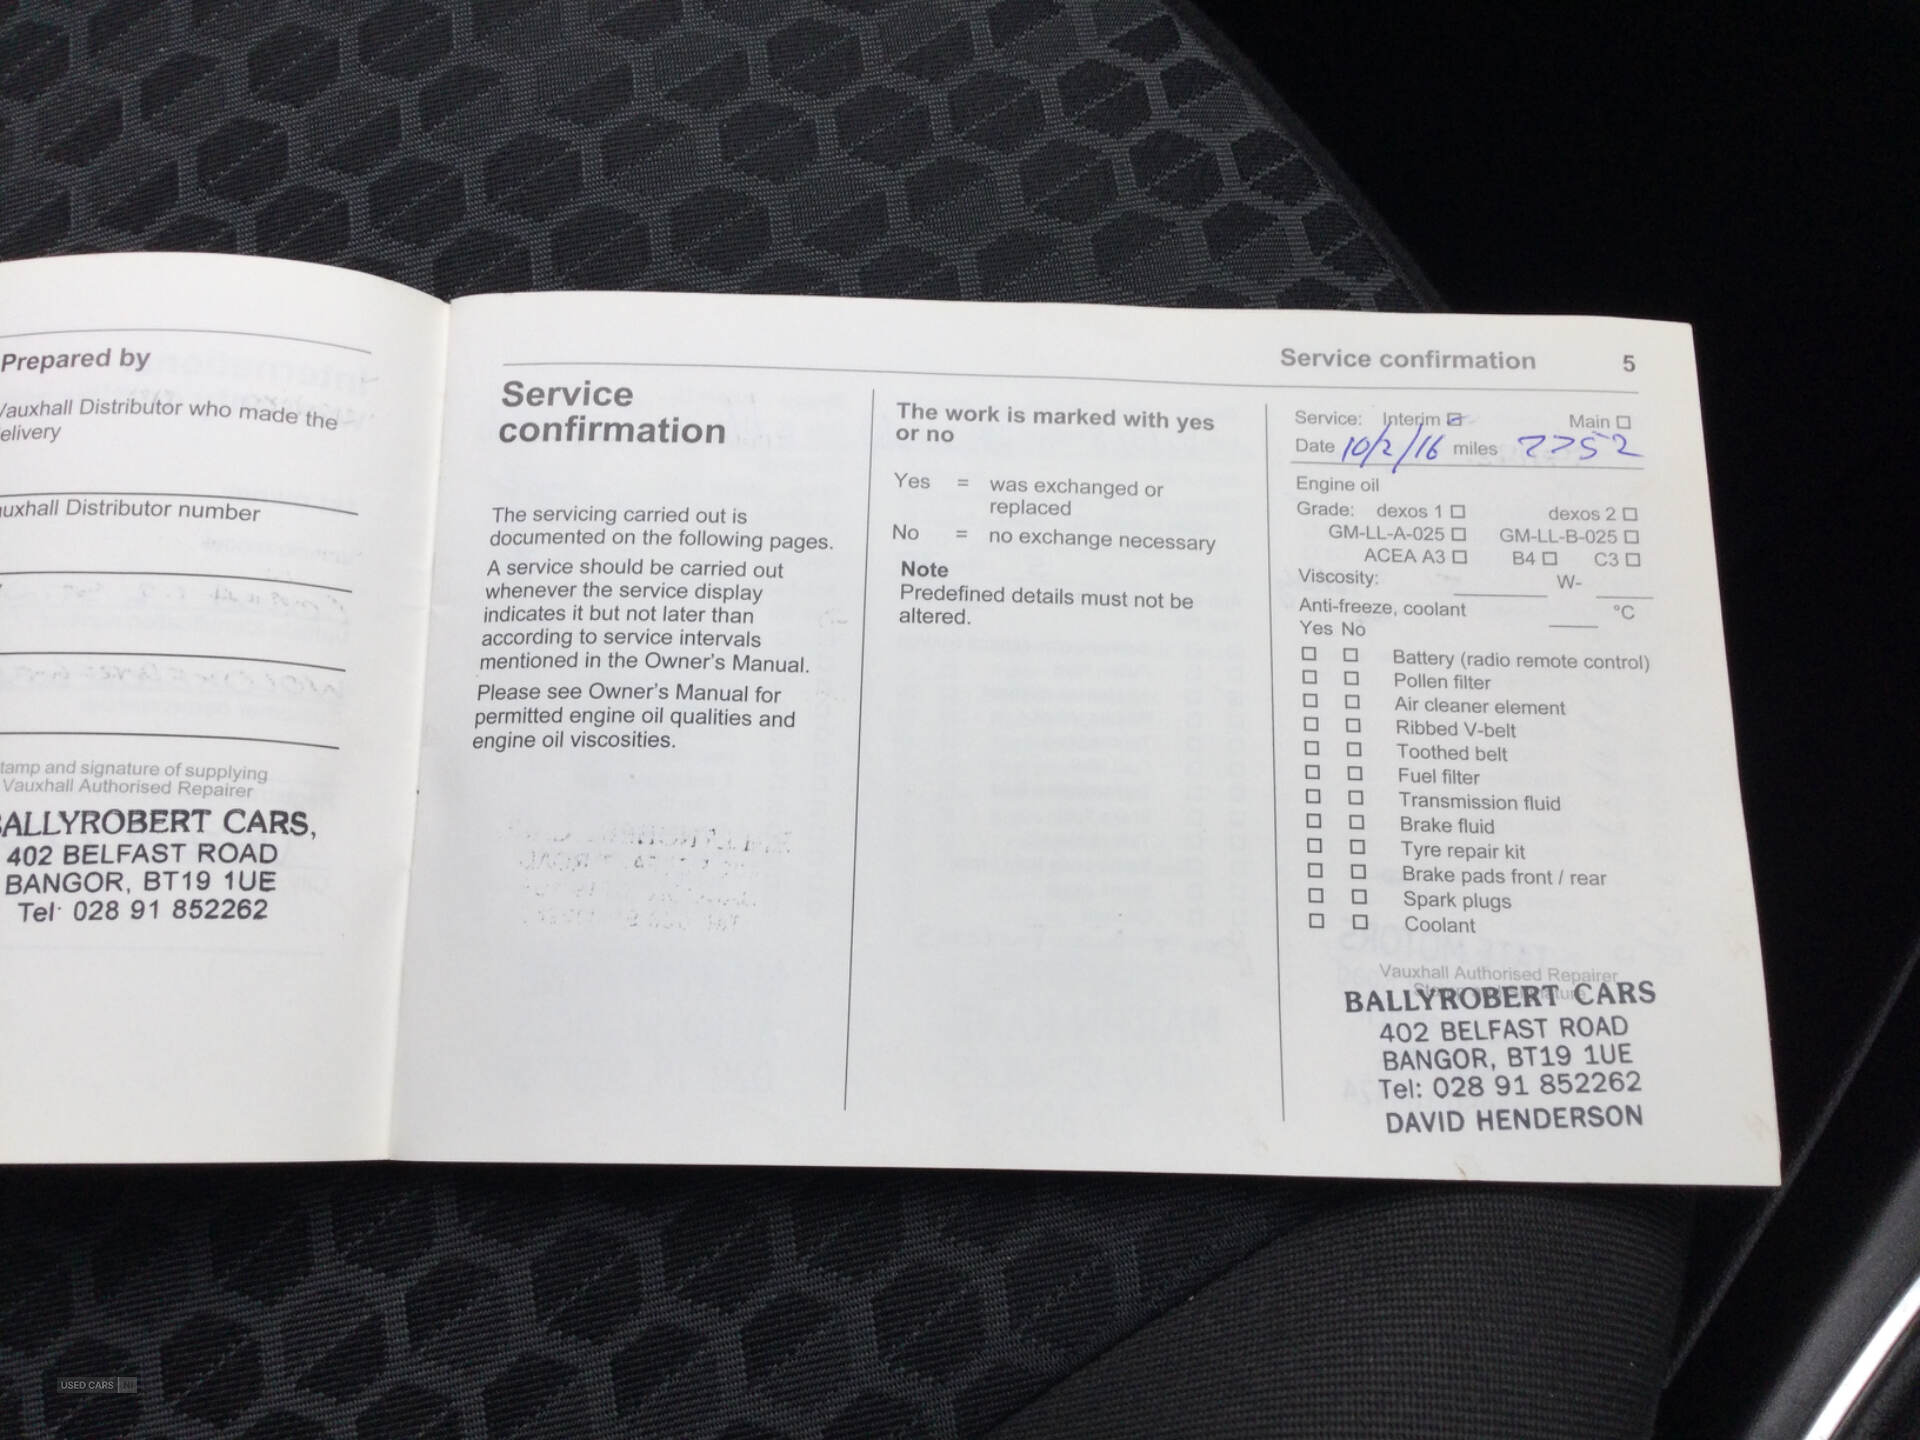 Prepared by
Vauxhall Distributor who made the
elivery
uxhall Distributor number
tamp and signature of supplying
Vauxhall Authorised Repairer
BALLYROBERT CARS,
402 BELFAST ROAD
BANGOR, BT19 1UE
Tel: 028 91 852262
Service confirmation 5
Service
confirmation
The servicing carried out is
documented on the following pages.
A service should be carried out
whenever the service display
indicates it but not later than
according to service intervals
mentioned in the Owner's Manual.
Please see Owner's Manual for
permitted engine oil qualities and
engine oil viscosities.
The work is marked with yes
or no
Yes = was exchanged or
replaced
No = no exchange necessary
Note
Predefined details must not be
altered.
Service: Interim ☑ Main ☐
Date 10/2/16 miles 7752
Engine oil
Grade: dexos 1 ☐ dexos 2 ☐
GM-LL-A-025 ☐ GM-LL-B-025 ☐
ACEA A3 ☐ B4 ☐ C3 ☐
Viscosity: ____ W- ____
Anti-freeze, coolant ____ °C
Yes No
☐ ☐ Battery (radio remote control)
☐ ☐ Pollen filter
☐ ☐ Air cleaner element
☐ ☐ Ribbed V-belt
☐ ☐ Toothed belt
☐ ☐ Fuel filter
☐ ☐ Transmission fluid
☐ ☐ Brake fluid
☐ ☐ Tyre repair kit
☐ ☐ Brake pads front / rear
☐ ☐ Spark plugs
☐ ☐ Coolant
Vauxhall Authorised Repairer
BALLYROBERT CARS
402 BELFAST ROAD
BANGOR, BT19 1UE
Tel: 028 91 852262
DAVID HENDERSON
USED CARS NI